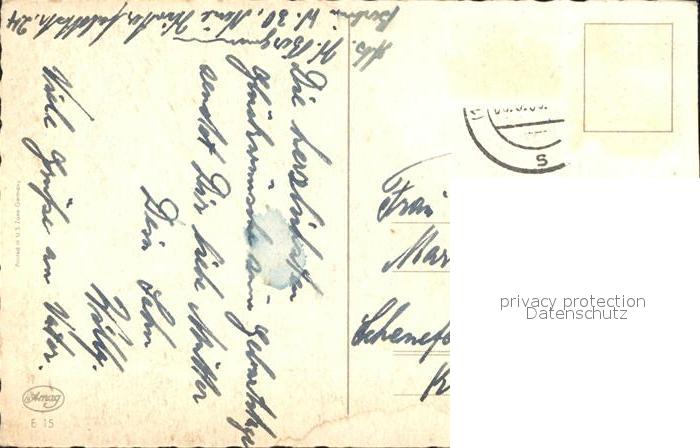 Abs. H. Bergmann
Berlin W 30, Neue Winterfeldtstr. 24
Die herzlichsten
Glückwünsche zum Geburtstge
sendet Dir liebe Mutter
Dein Sohn
Willy.
Viele Grüße an Vater.
Printed in U.S. Zone Germany
Amag
E 15
S
Frau
Mar
Schenef
K
privacy protection
Datenschutz